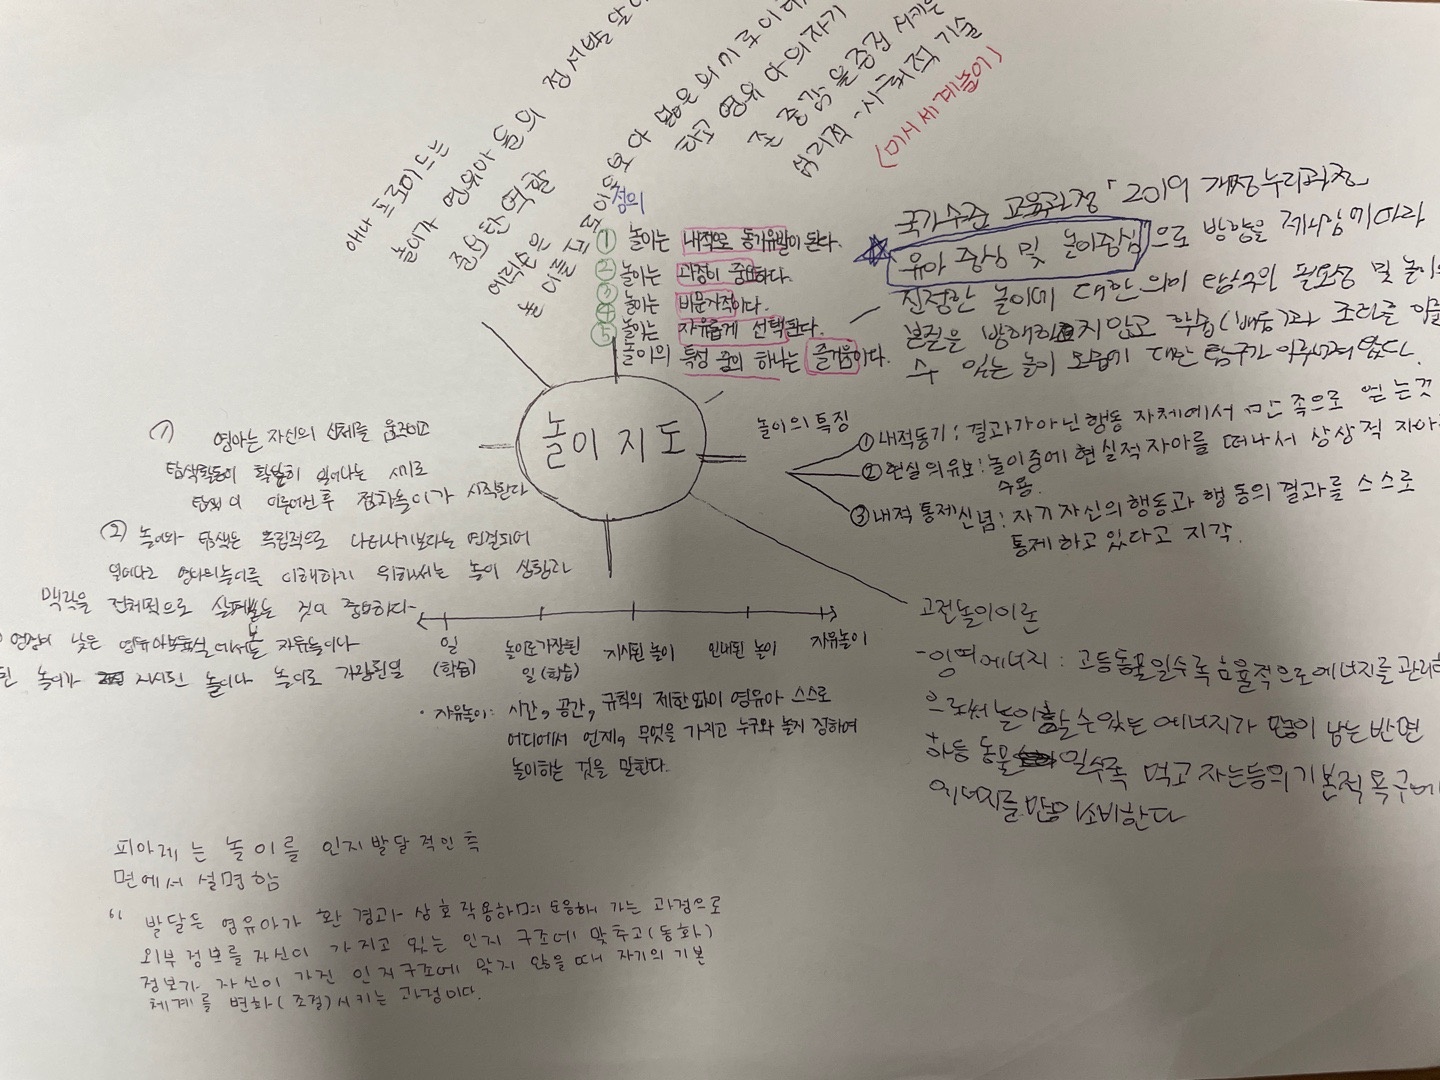 애나 프로이드는
놀이가 영유아들의 정서발달에
중요한 역할
에릭슨은
놀이를
많은 의미로
타고 영유아의 자기
존중감을 증진시키는
심리적-사회적 기술
(미시세계놀이)
정의
① 놀이는 내적으로 동기유발이 된다.
② 놀이는 과정이 중요하다.
③ 놀이는 비문자적이다.
④ 놀이는 자유롭게 선택된다.
⑤ 놀이의 특성 중의 하나는 즐거움이다.
국가수준 교육과정「2019 개정누리과정」
유아 중심 및 놀이중심으로 방향을 제시함에 따라
진정한 놀이에 대한 의미 탐구의 필요성 및 놀이의
본질을 방해하지 않고 학습(배움)과 조화를 이룰
수 있는 놀이 모습에 대한 탐구가 이루어져 왔다.
놀이지도
놀이의 특징
① 내적동기: 결과가 아닌 행동 자체에서 만족으로 얻는것
② 현실의 유보: 놀이중에 현실적자아를 떠나서 상상적 자아
수용.
③ 내적 통제신념: 자기자신의 행동과 행동의 결과를 스스로
통제하고 있다고 지각.
① 영아는 자신의 신체를 움직이고
탐색활동이 활발히 일어나는 시기로
탐색이 이루어진후 점차놀이가 시작한다
② 놀이와 탐색은 독립적으로 나타나기보다는 연결되어
일어나고 영아의놀이를 이해하기 위해서는 놀이 상황과
맥락을 전체적으로 살펴보는 것이 중요하다
연령이 낮은 영유아 에서 본 자유놀이다
된 놀이가 지시된 놀이나 놀이로 가장된일
일
(학습)
놀이로가장된
일(학습)
지시된 놀이
안내된 놀이
자유놀이
· 자유놀이: 시간, 공간, 규칙의 제한없이 영유아 스스로
어디에서 언제, 무엇을 가지고 누구와 놀지 정하여
놀이하는 것을 말한다.
고전놀이이론
-잉여에너지: 고등동물일수록 효율적으로에너지를 관리함
으로써 놀이할 수있는 에너지가 많이 남는반면
하등 동물 일수록 먹고 자는등의기본적욕구에
에너지를 많이소비한다
피아제는 놀이를 인지발달적인 측
면에서 설명함
" 발달은 영유아가 환경과 상호작용하며 적응해 가는 과정으로
외부정보를 자신이 가지고 있는 인지 구조에 맞추고(동화)
정보가 자신이 가진 인지구조에 맞지 않을 때 자기의 기본
체계를 변화(조절)시키는 과정이다.